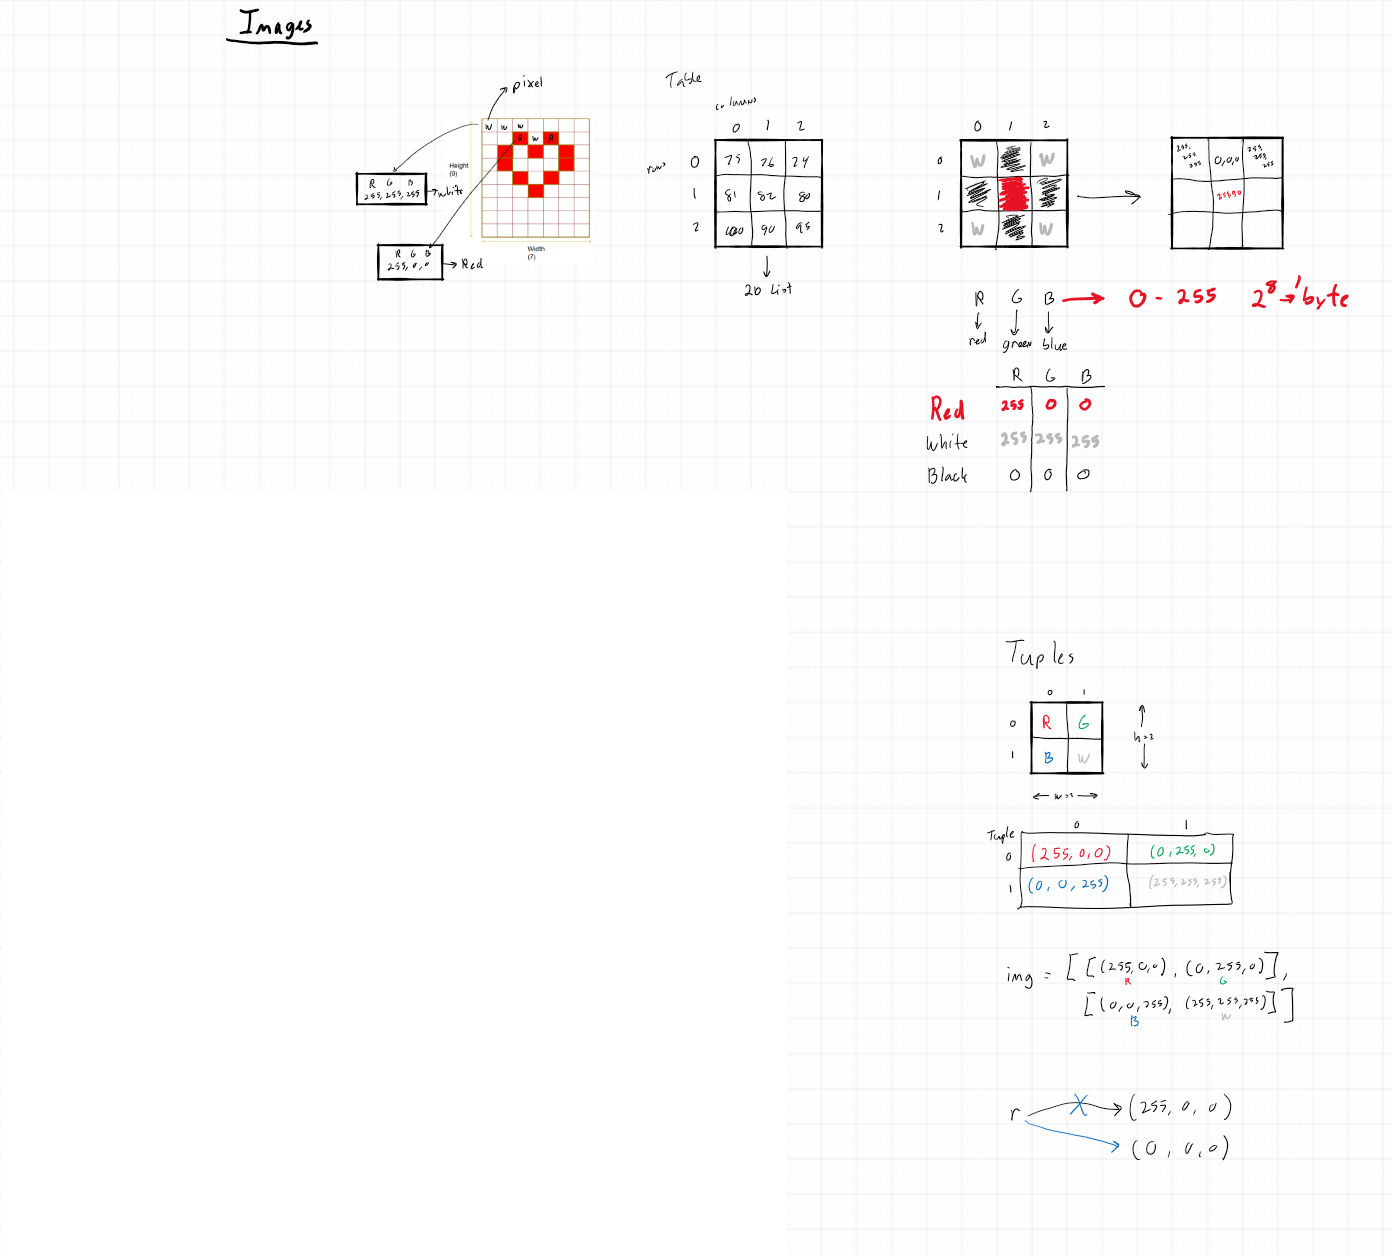 Images
pixel
W W W
R W R
Height
(9)
Width
(7)
R G B
255, 255, 255
white
R G B
255, 0, 0
Red
Table
columns
0 1 2
rows
0 75 76 74
1 81 82 80
2 100 90 95
2D List
0 1 2
0 W W
1
2 W W
255, 255, 255 0,0,0 255, 255, 255
255,0,0
R G B
0 - 255 2^8 → 1 byte
red green blue
R G B
Red 255 0 0
White 255 255 255
Black 0 0 0
Tuples
0 1
0 R G
1 B W
h=2
w=2
Tuple
0 1
0 (255, 0, 0) (0, 255, 0)
1 (0, 0, 255) (255, 255, 255)
img = [ [(255,0,0), (0, 255, 0)],
R G
[(0,0,255), (255,255,255)] ]
B W
r (255, 0, 0)
(0, 0, 0)